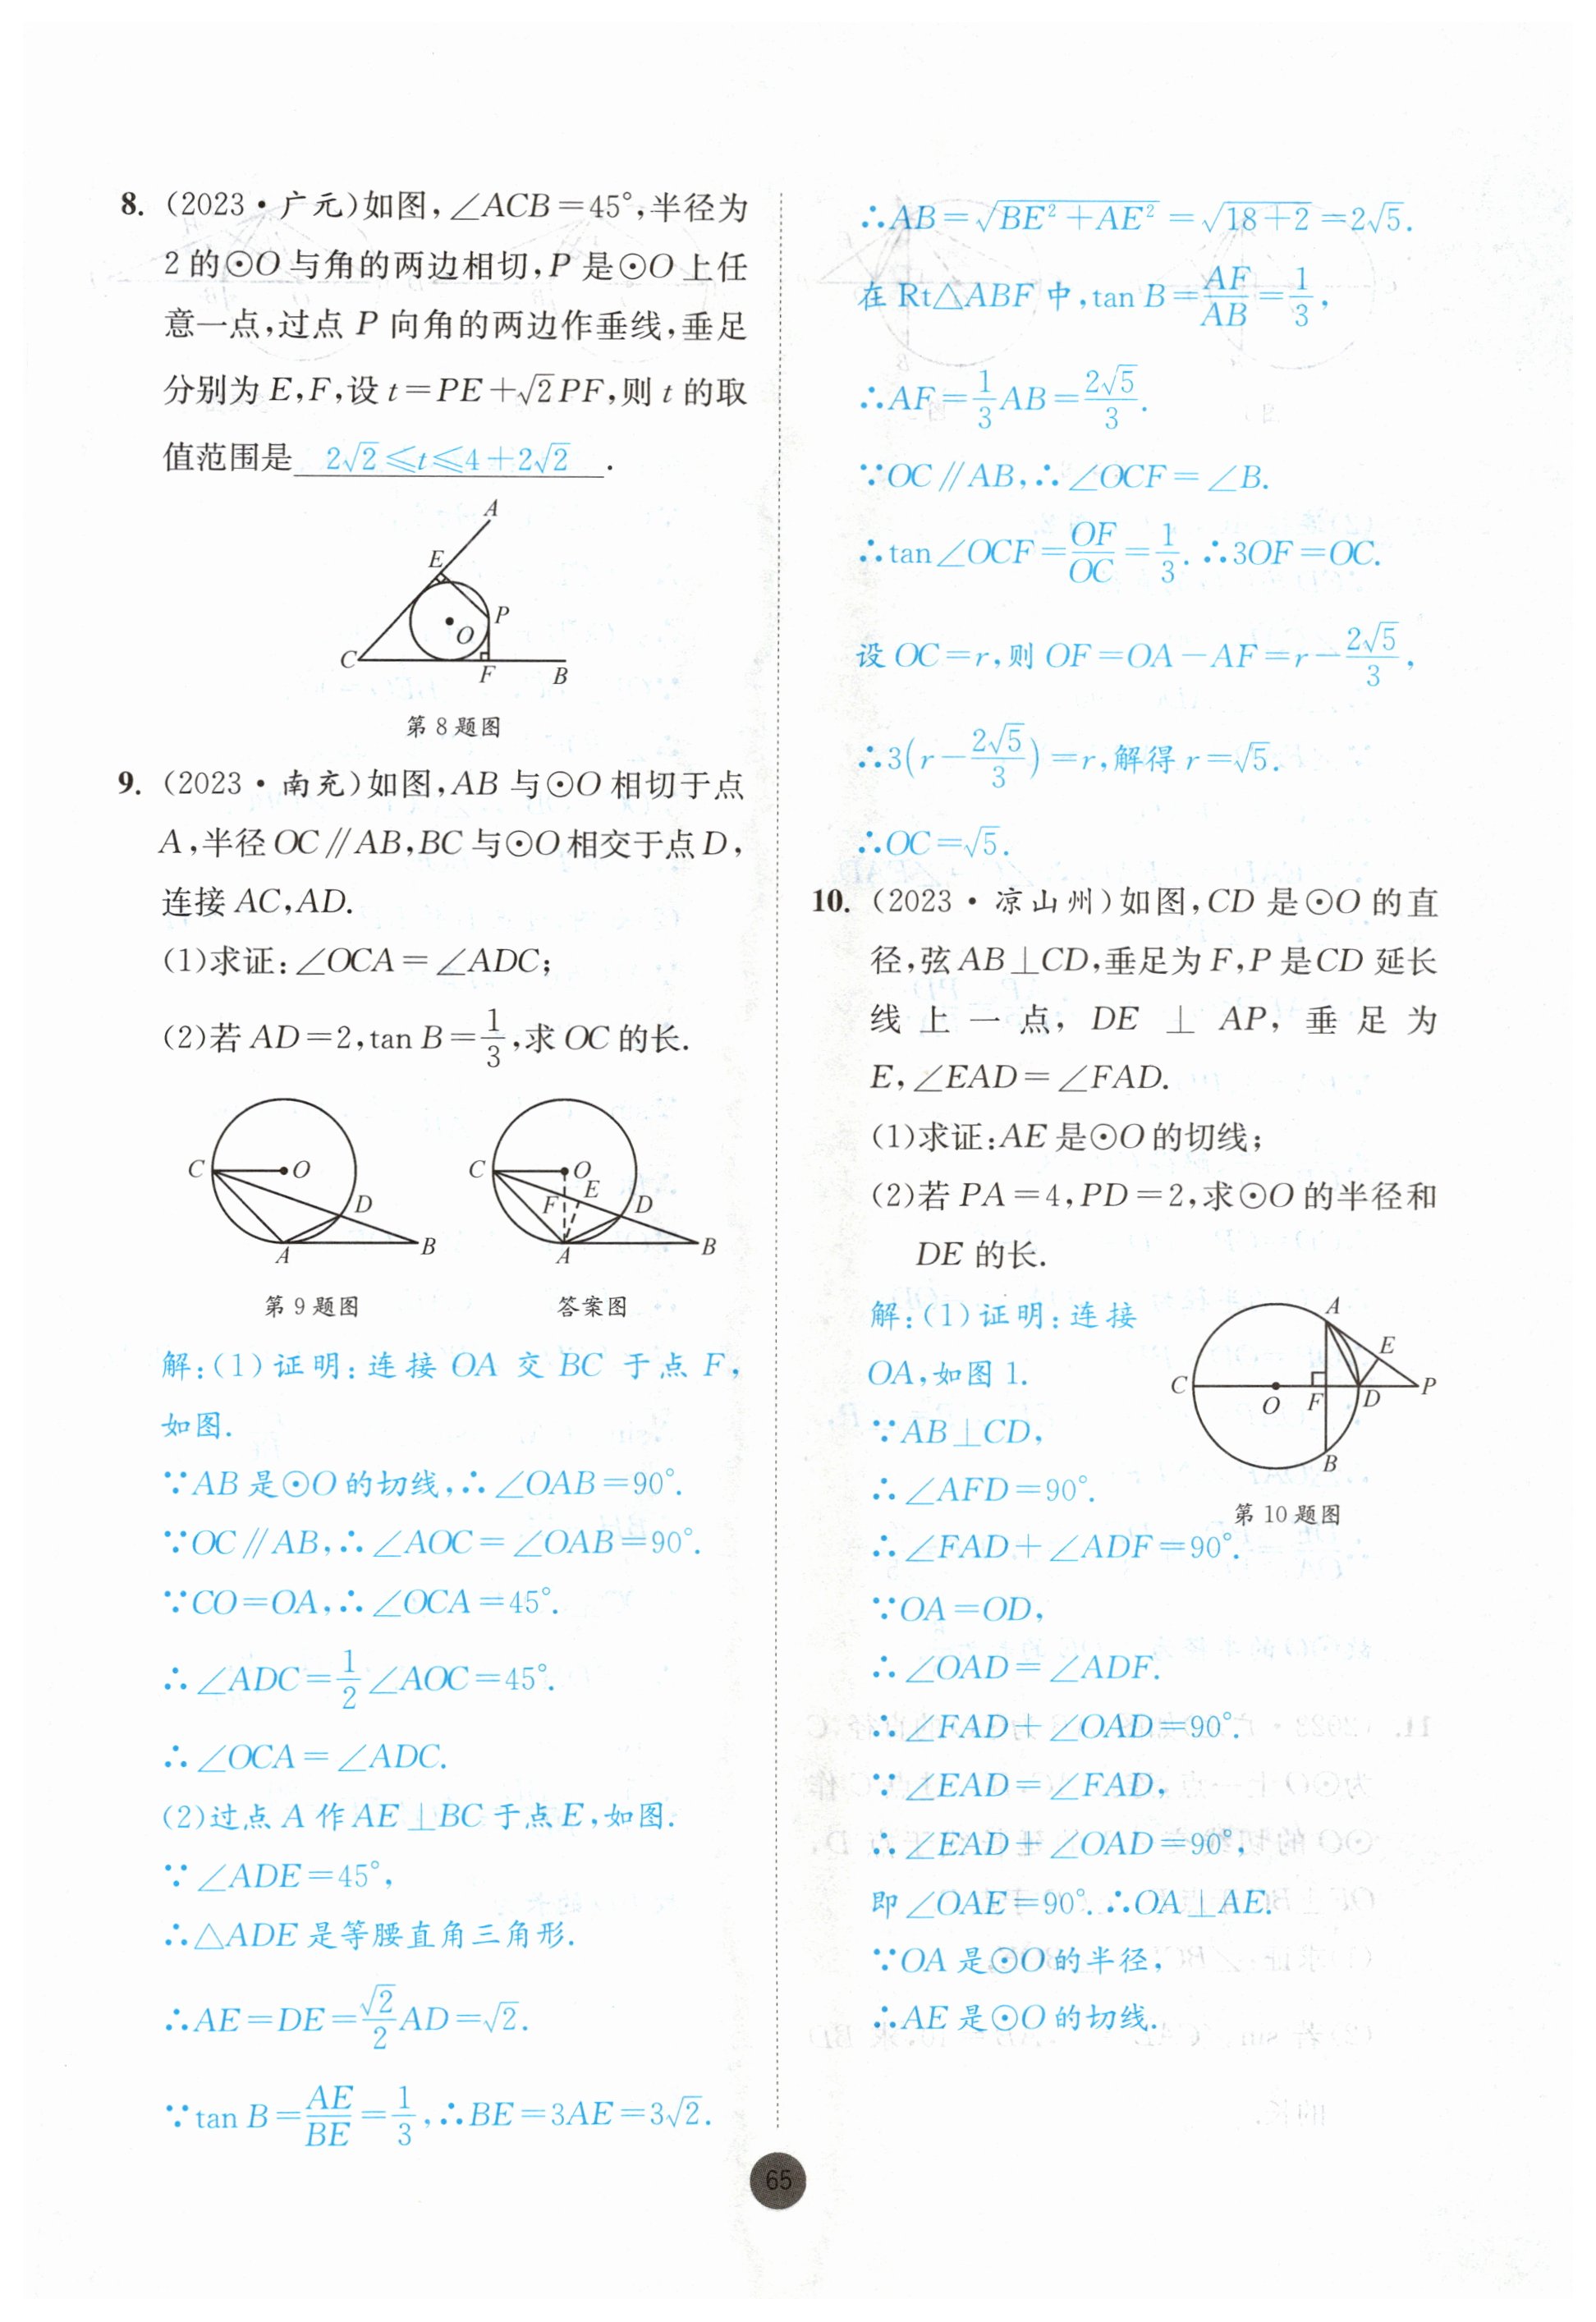 8. (2023·广元)如图,∠ACB=45°,半径为
2的⊙O与角的两边相切,P是⊙O上任
意一点,过点P向角的两边作垂线,垂足
分别为E,F,设t=PE+√2PF,则t的取
值范围是 2√2≤t≤4+2√2 .
A
E
P
O
C
F
B
第8题图
9. (2023·南充)如图,AB与⊙O相切于点
A,半径OC∥AB,BC与⊙O相交于点D,
连接AC,AD.
(1)求证:∠OCA=∠ADC;
(2)若AD=2,tan B=1/3,求OC的长.
C
O
D
A
B
第9题图
C
O
E
F
D
A
B
答案图
解:(1)证明:连接OA交BC于点F,
如图.
∵AB是⊙O的切线,∴∠OAB=90°.
∵OC∥AB,∴∠AOC=∠OAB=90°.
∵CO=OA,∴∠OCA=45°.
∴∠ADC=1/2∠AOC=45°.
∴∠OCA=∠ADC.
(2)过点A作AE⊥BC于点E,如图.
∵∠ADE=45°,
∴△ADE是等腰直角三角形.
∴AE=DE=√2/2AD=√2.
∵tan B=AE/BE=1/3,∴BE=3AE=3√2.
∴AB=√(BE²+AE²)=√(18+2)=2√5.
在Rt△ABF中,tan B=AF/AB=1/3,
∴AF=1/3AB=2√5/3.
∵OC∥AB,∴∠OCF=∠B.
∴tan∠OCF=OF/OC=1/3.∴3OF=OC.
设OC=r,则OF=OA-AF=r-2√5/3,
∴3(r-2√5/3)=r,解得r=√5.
∴OC=√5.
10. (2023·凉山州)如图,CD是⊙O的直
径,弦AB⊥CD,垂足为F,P是CD延长
线上一点,DE⊥AP,垂足为
E,∠EAD=∠FAD.
(1)求证:AE是⊙O的切线;
(2)若PA=4,PD=2,求⊙O的半径和
DE的长.
解:(1)证明:连接
OA,如图1.
∵AB⊥CD,
∴∠AFD=90°.
A
E
C
O
F
D
P
B
第10题图
∴∠FAD+∠ADF=90°.
∵OA=OD,
∴∠OAD=∠ADF.
∴∠FAD+∠OAD=90°.
∵∠EAD=∠FAD,
∴∠EAD+∠OAD=90°,
即∠OAE=90°.∴OA⊥AE.
∵OA是⊙O的半径,
∴AE是⊙O的切线.
65